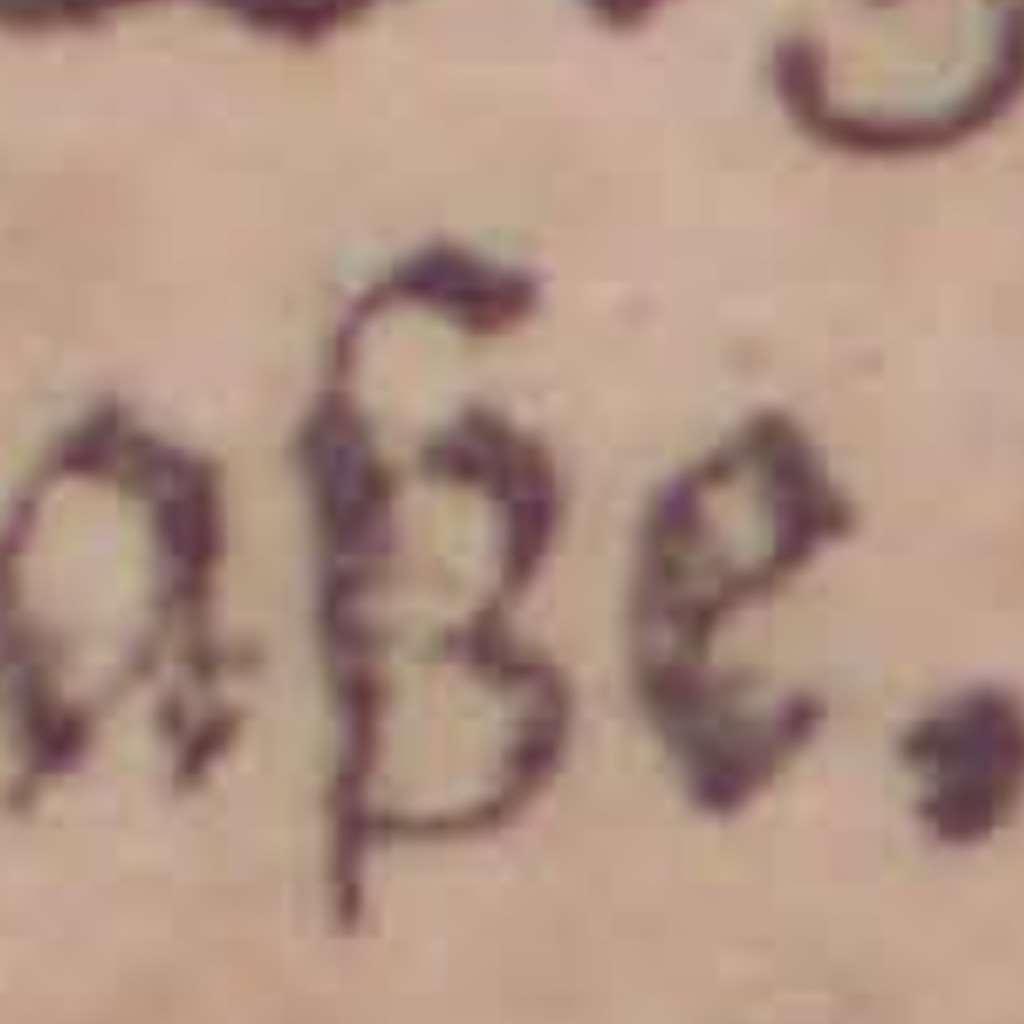 aße.